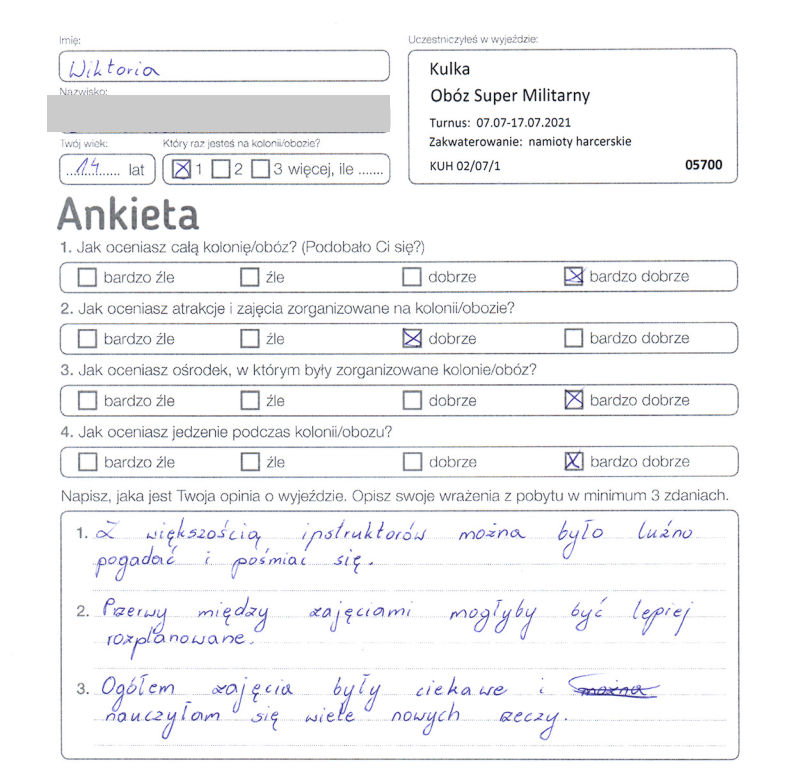 Imię:
Wiktoria
Uczestniczyłeś w wyjeździe:
Kulka
Obóz Super Militarny
Turnus: 07.07-17.07.2021
Zakwaterowanie: namioty harcerskie
KUH 02/07/1 05700
Nazwisko:
Twój wiek: Który raz jesteś na kolonii/obozie?
...14... lat 1 2 3 więcej, ile .......
Ankieta
1. Jak oceniasz całą kolonię/obóz? (Podobało Ci się?)
bardzo źle źle dobrze bardzo dobrze
2. Jak oceniasz atrakcje i zajęcia zorganizowane na kolonii/obozie?
bardzo źle źle dobrze bardzo dobrze
3. Jak oceniasz ośrodek, w którym były zorganizowane kolonie/obóz?
bardzo źle źle dobrze bardzo dobrze
4. Jak oceniasz jedzenie podczas kolonii/obozu?
bardzo źle źle dobrze bardzo dobrze
Napisz, jaka jest Twoja opinia o wyjeździe. Opisz swoje wrażenia z pobytu w minimum 3 zdaniach.
1. Z większością instruktorów można było luźno
pogadać i pośmiać się.
2. Przerwy między zajęciami mogłyby być lepiej
rozplanowane.
3. Ogółem zajęcia były ciekawe i można
nauczyłam się wiele nowych rzeczy.